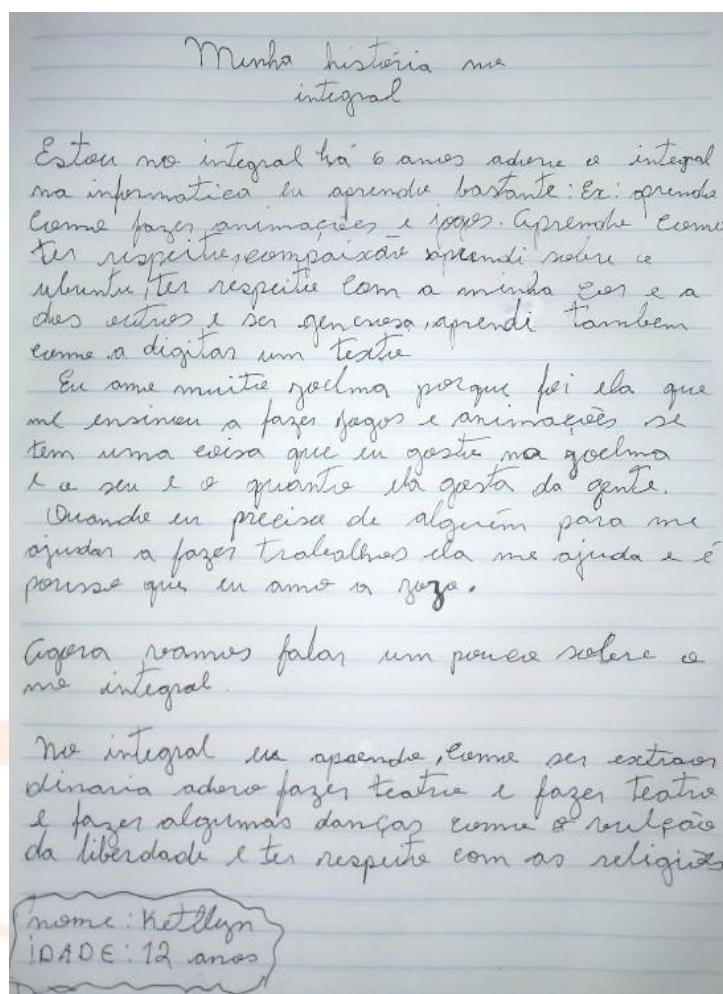 Minha história no
integral
Estou no integral há 6 anos adoro o integral
na informatica eu aprendo bastante: Ex: aprendo
como fazer animações e jogos. Aprendo como
ter respeito, compaixão aprendi sobre o
ubuntu, ter respeito com a minha cor e a
dos outros e ser generosa, aprendi tambem
como a digitar um texto
Eu amo muito joelma porque foi ela que
me ensinou a fazer jogos e animações se
tem uma coisa que eu gosto na joelma
é o seu e o quanto ela gosta da gente.
Quando eu preciso de alguém para me
ajudar a fazer trabalhos ela me ajuda e é
porisso que eu amo a jojo.
Agora vamos falar um pouco sobre o
no integral.
No integral eu aprendo, como ser extraor
dinaria adoro fazer teatro e fazer teatro
e fazer algumas danças como o
da liberdade e ter respeito com as religiões
nome: Ketllyn
IDADE: 12 anos